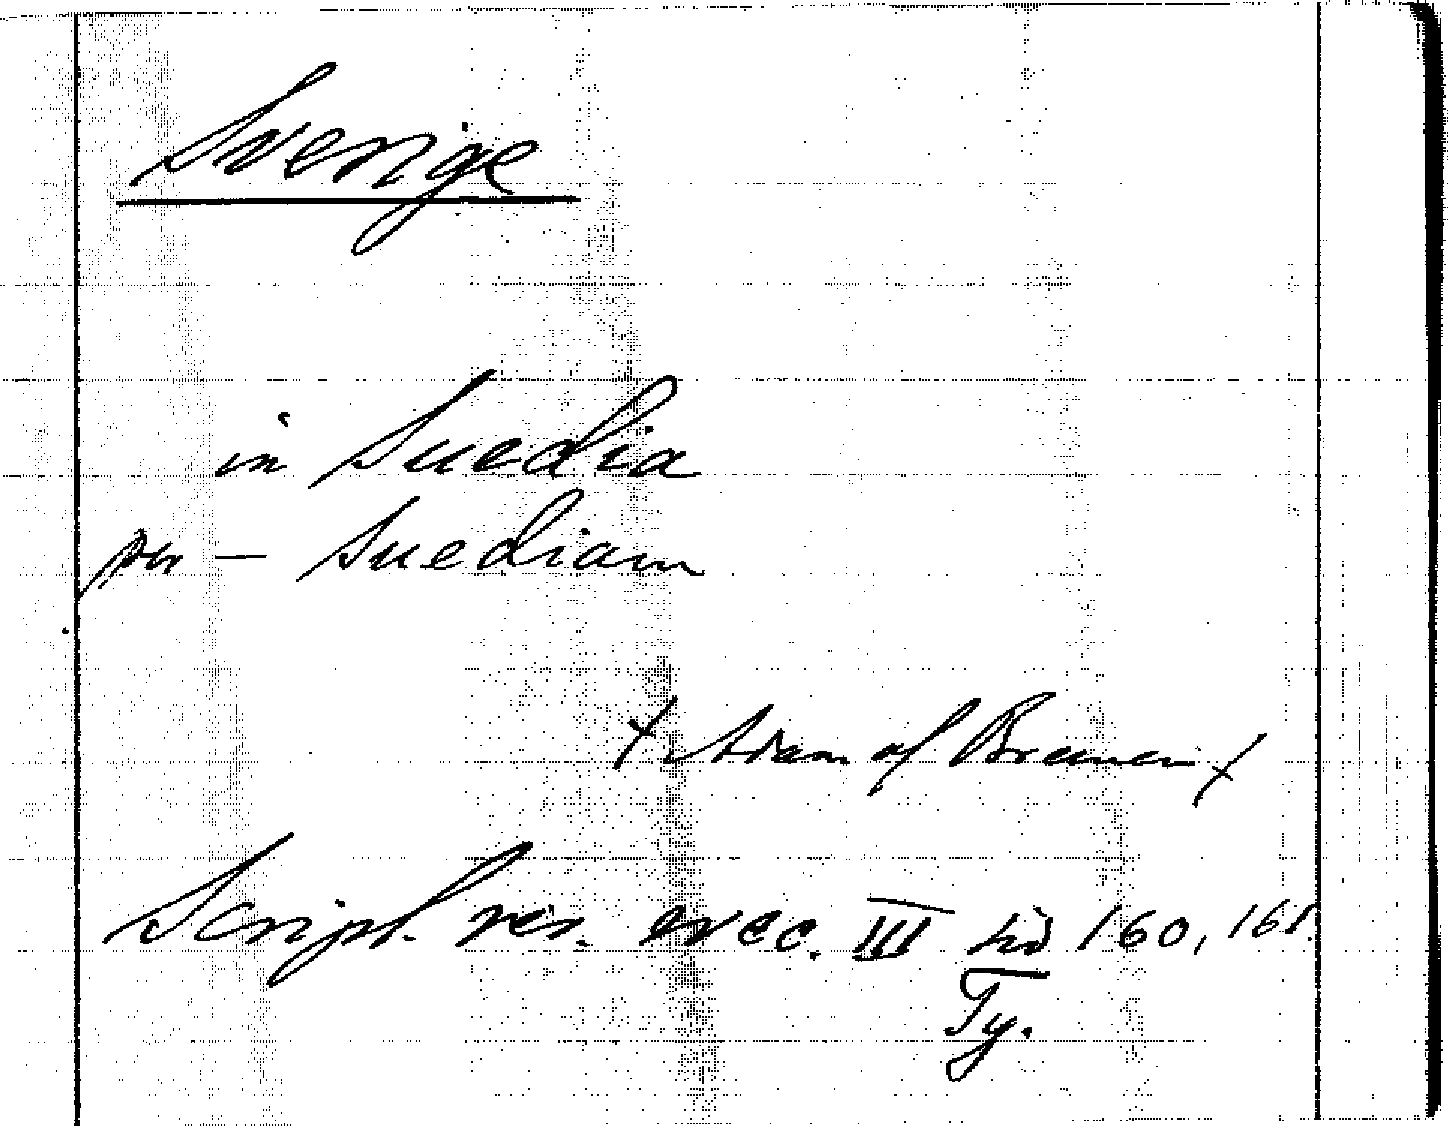 Sverige
in Suedia
per — Suediam
+ Adam of Bremen +
Script. rer. svec. III sid 160, 161.
Ty.